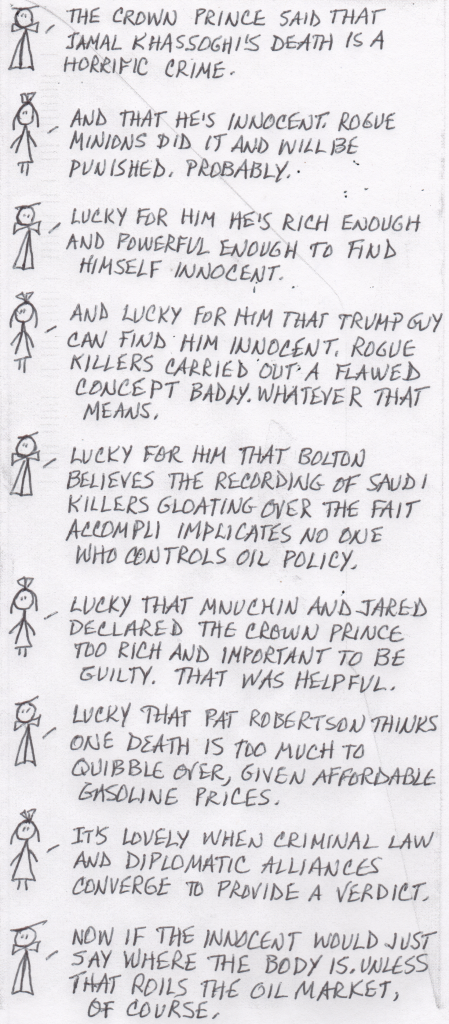 THE CROWN PRINCE SAID THAT
JAMAL KHASSOGHI'S DEATH IS A
HORRIFIC CRIME.
AND THAT HE'S INNOCENT. ROGUE
MINIONS DID IT AND WILL BE
PUNISHED. PROBABLY.
LUCKY FOR HIM HE'S RICH ENOUGH
AND POWERFUL ENOUGH TO FIND
HIMSELF INNOCENT.
AND LUCKY FOR HIM THAT TRUMP GUY
CAN FIND HIM INNOCENT. ROGUE
KILLERS CARRIED OUT A FLAWED
CONCEPT BADLY. WHATEVER THAT
MEANS.
LUCKY FOR HIM THAT BOLTON
BELIEVES THE RECORDING OF SAUDI
KILLERS GLOATING OVER THE FAIT
ACCOMPLI IMPLICATES NO ONE
WHO CONTROLS OIL POLICY.
LUCKY THAT MNUCHIN AND JARED
DECLARED THE CROWN PRINCE
TOO RICH AND IMPORTANT TO BE
GUILTY. THAT WAS HELPFUL.
LUCKY THAT PAT ROBERTSON THINKS
ONE DEATH IS TOO MUCH TO
QUIBBLE OVER, GIVEN AFFORDABLE
GASOLINE PRICES.
IT'S LOVELY WHEN CRIMINAL LAW
AND DIPLOMATIC ALLIANCES
CONVERGE TO PROVIDE A VERDICT.
NOW IF THE INNOCENT WOULD JUST
SAY WHERE THE BODY IS. UNLESS
THAT ROILS THE OIL MARKET,
OF COURSE.